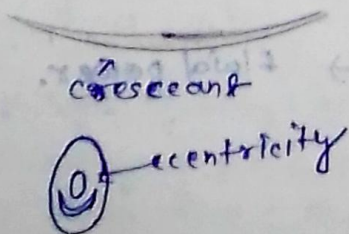 coresceant
eccentricity